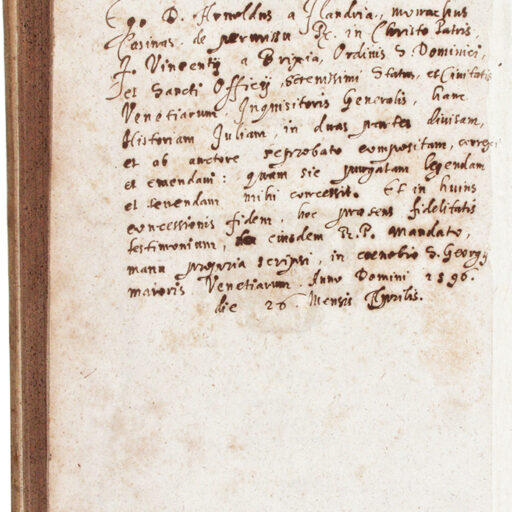 Ego D. Arnoldus a Flandria, monachus
Casinas, de permissu R. in Christo Patris,
F. Vincentij a Brixia, Ordinis S. Dominici,
et Sancti Officij, Serenissimi Status, et Civitatis
Venetiarum Inquisitoris Generalis, hanc
Historiam Juliam, in duas partes divisam,
et ob auctore reprobato compositam, correxi
et emendavi: quam sic purgatam legendam
et tenendam mihi concessit. Et in huius
concessionis fidem, hoc praesens fidelitatis
testimonium, eiusdem R. P. mandato,
manu propria scripsi, in coenobio S. Georgij
maioris Venetiarum. Anno Domini 1596.
die 26. Mensis Aprilis.